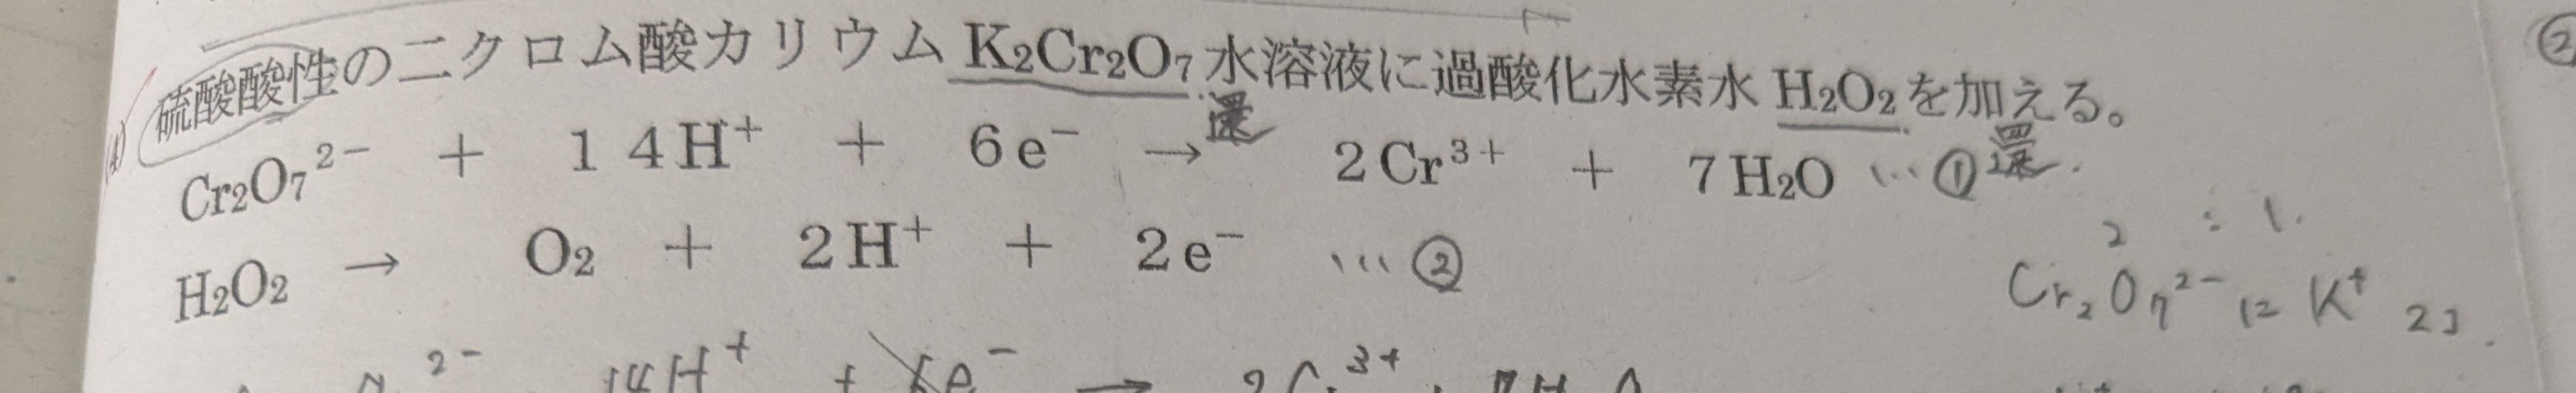 硫酸酸性の二クロム酸カリウム K₂Cr₂O₇ 水溶液に過酸化水素水 H₂O₂ を加える。
還
還.
(4)
Cr₂O₇²⁻ + 14H⁺ + 6e⁻ → 2Cr³⁺ + 7H₂O … ①
H₂O₂ → O₂ + 2H⁺ + 2e⁻ … ②
2 : 1.
Cr₂O₇²⁻ に K⁺ 2コ.
²⁻ 14H⁺ + 6e⁻ → 2Cr³⁺ + 7H₂O
②